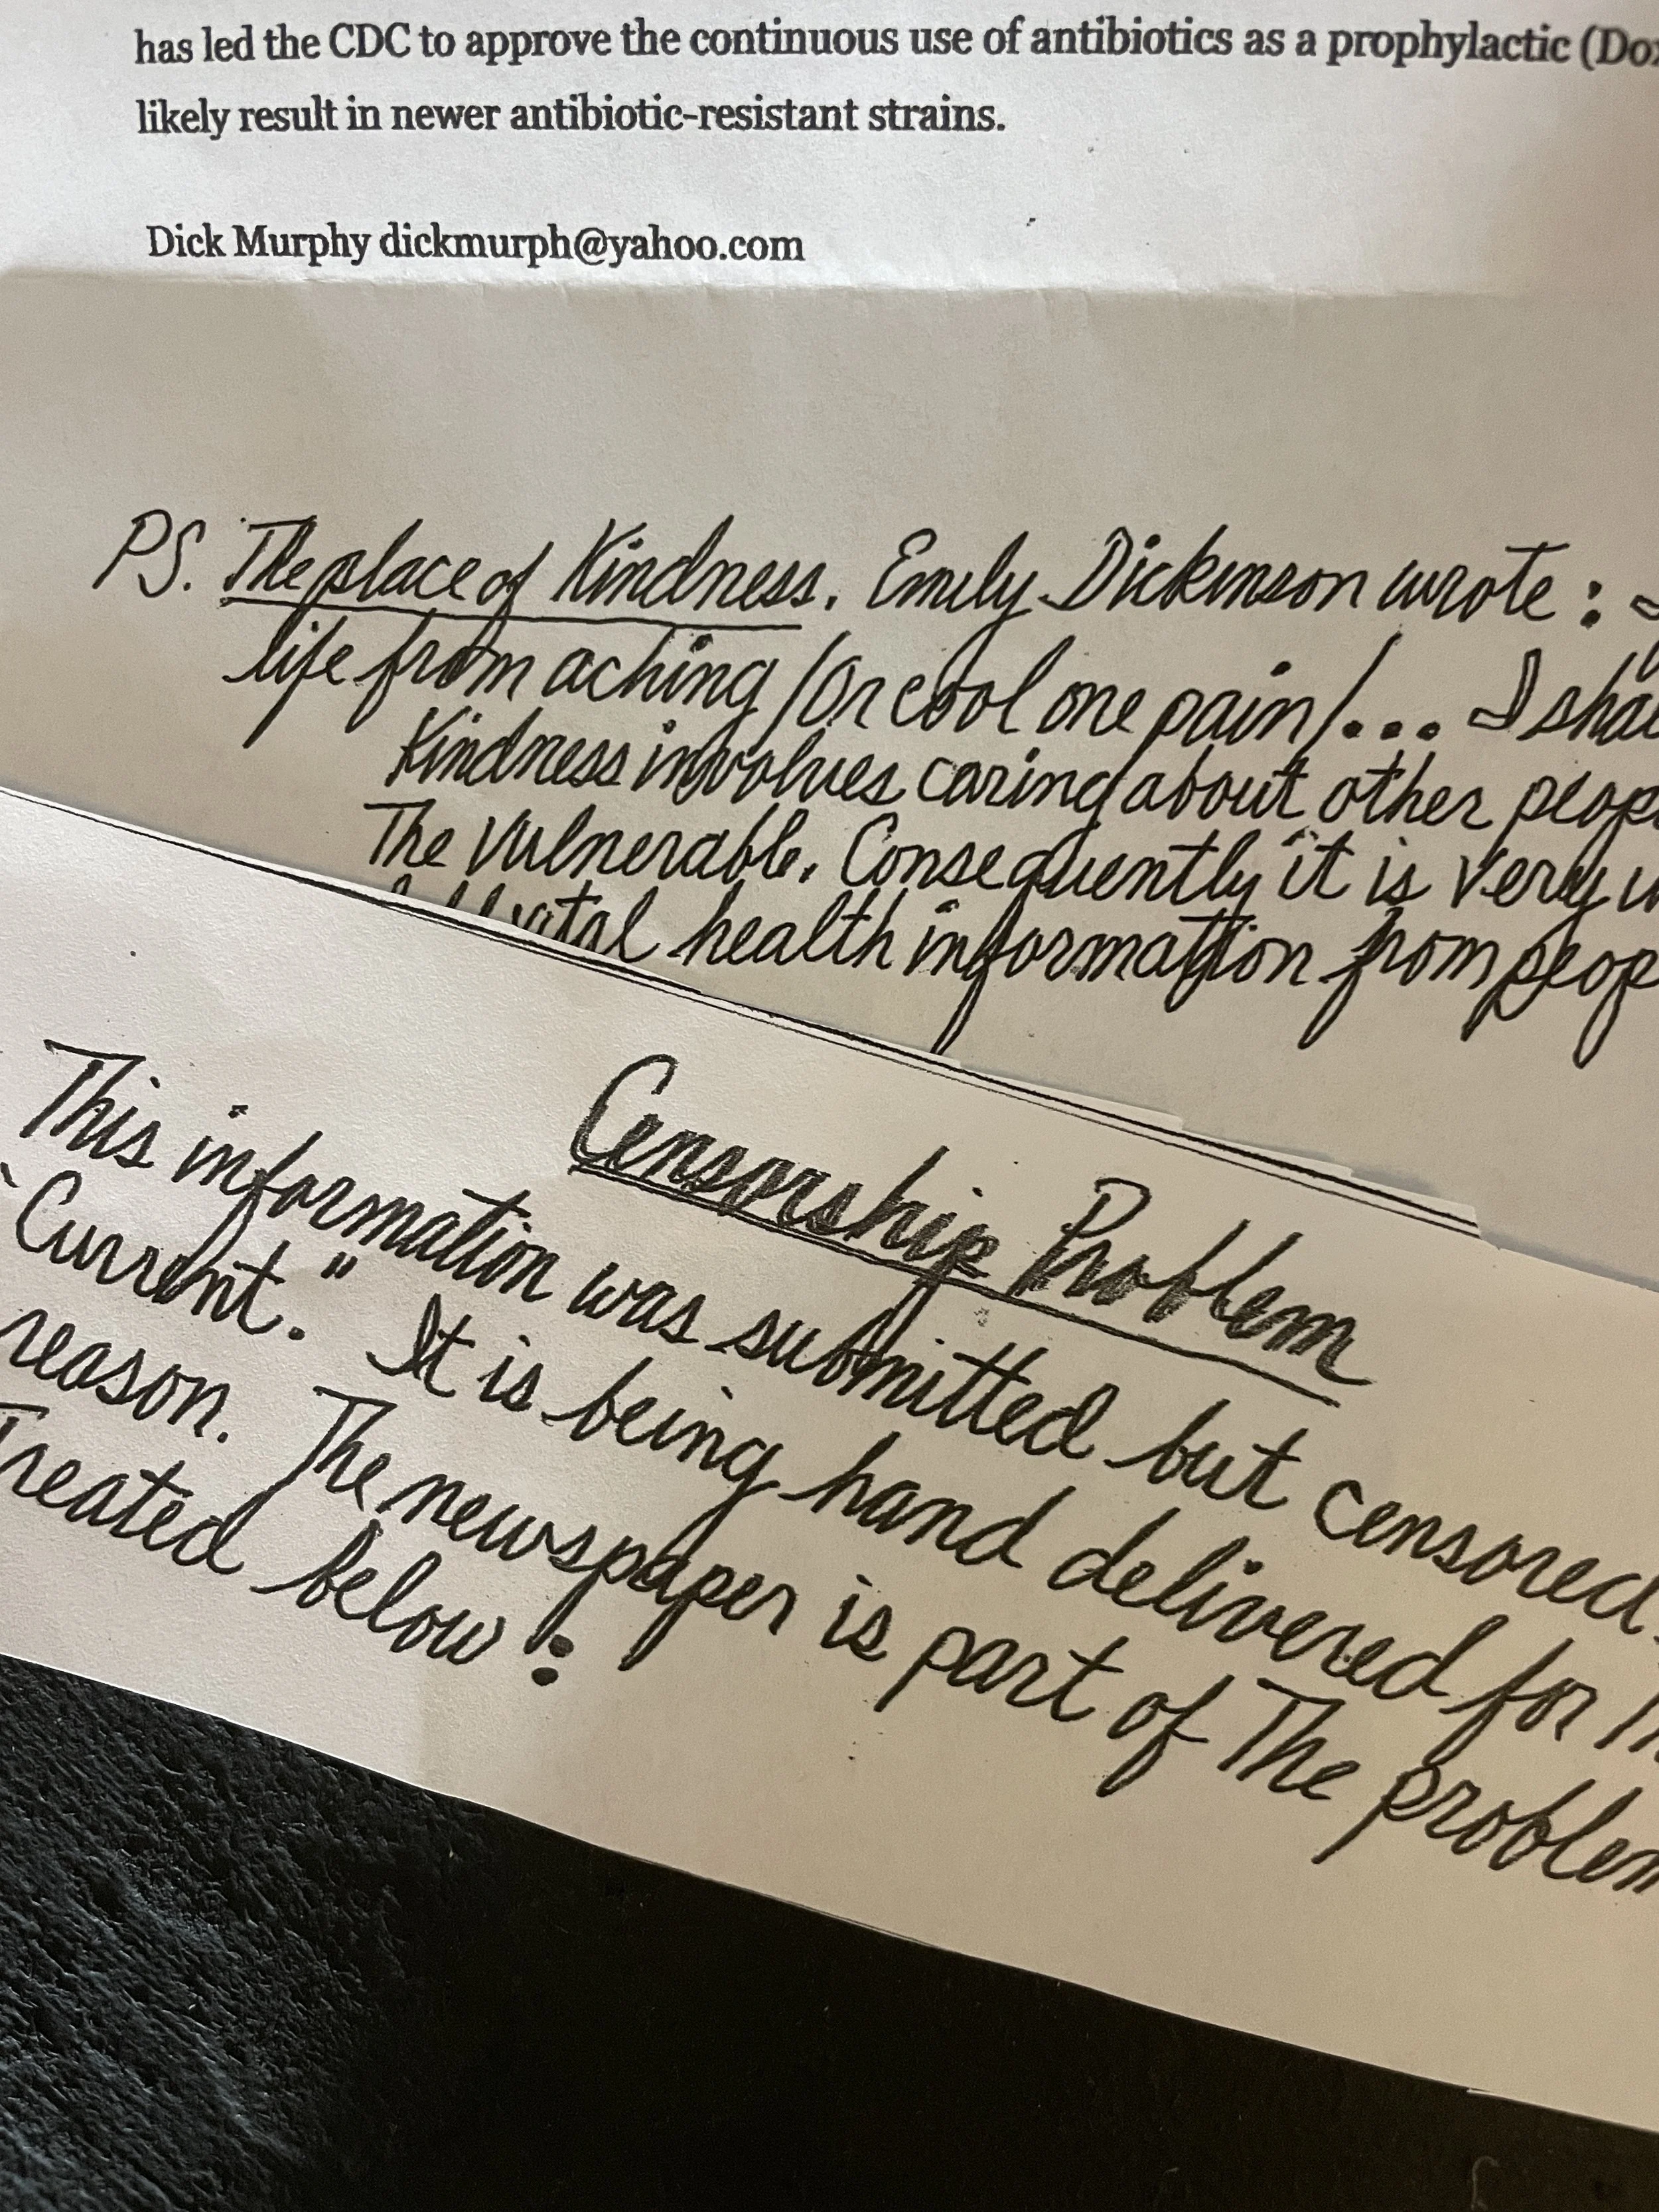 has led the CDC to approve the continuous use of antibiotics as a prophylactic (Dox
likely result in newer antibiotic-resistant strains.
Dick Murphy dickmurph@yahoo.com
PS. The place of Kindness. Emily Dickinson wrote:
life from aching/Or cool one pain/... I sha
Kindness involves caring about other peop
The vulnerable. Consequently it is very
vital health information from peop
Censorship Problem
This information was submitted but censored
"Current." It is being hand delivered for Th
reason. The newspaper is part of The problem
Treated below: